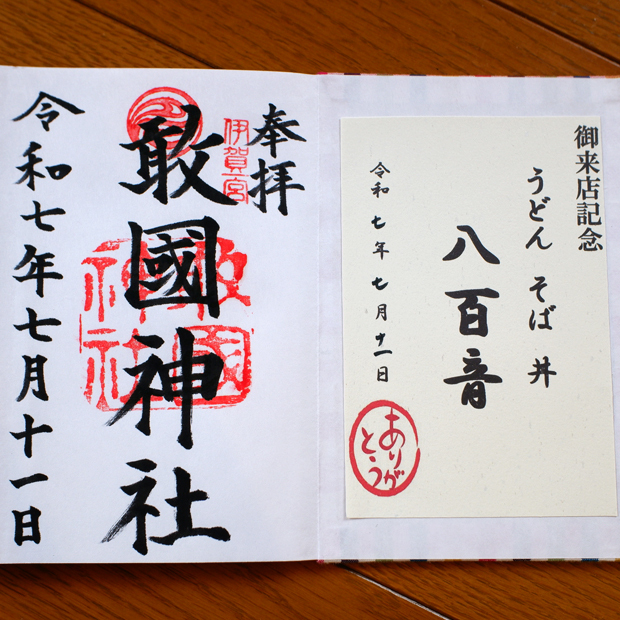 御来店記念
うどん そば 丼
八百音
令和七年七月十一日
ありがとう
奉拝
伊賀一宮
敢國神社
敢國神社
令和七年七月十一日